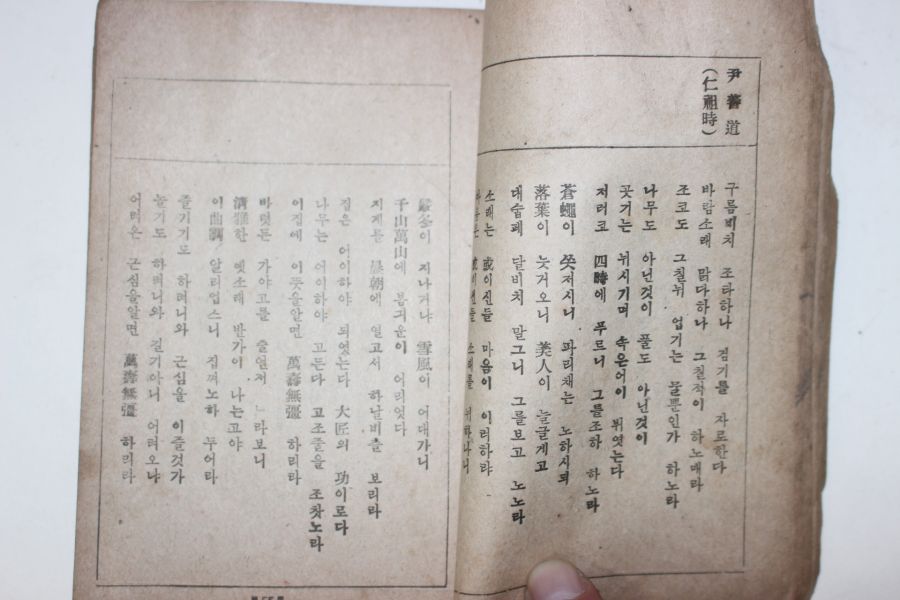 尹善道
(仁祖時)
구름비치 조타하나 검기를 자로한다
바람소래 맑다하나 그칠적이 하노매라
조코도 그칠뉘 업기는 물뿐인가 하노라
나무도 아닌것이 풀도 아닌것이
곳기는 뉘시기며 속은어이 뷔엿는다
저러코 四時에 푸르니 그를조하 하노라
蒼蠅이 쏫저시니 파리채는 노하시되
落葉이 늣거오니 美人이 늘글게고
대숩페 달비치 말그니 그를보고 노노라
소래는 或이진들 마음이 이러하랴
嚴冬이 지나거냐 雪風이 어대가니
千山萬山에 봄긔운이 어리엇다
지게를 晨朝에 열고서 하날비츨 보리라
집은 어이하야 되엿는다 大匠의 功이로다
나무는 어이하야 고든다 고조줄을 조찻노라
이집에 이뜻을알면 萬壽無彊 하리라
바렷든 가야고를 줄언저 라보니
淸雅한 옛소래 반가이 나는고야
이曲調 알리업스니 집껴노하 두어라
즐기기도 하려니와 근심을 이즐것가
놀기도 하려니와 길기아니 어려오냐
어려온 근심을알면 萬壽無彊 하리라